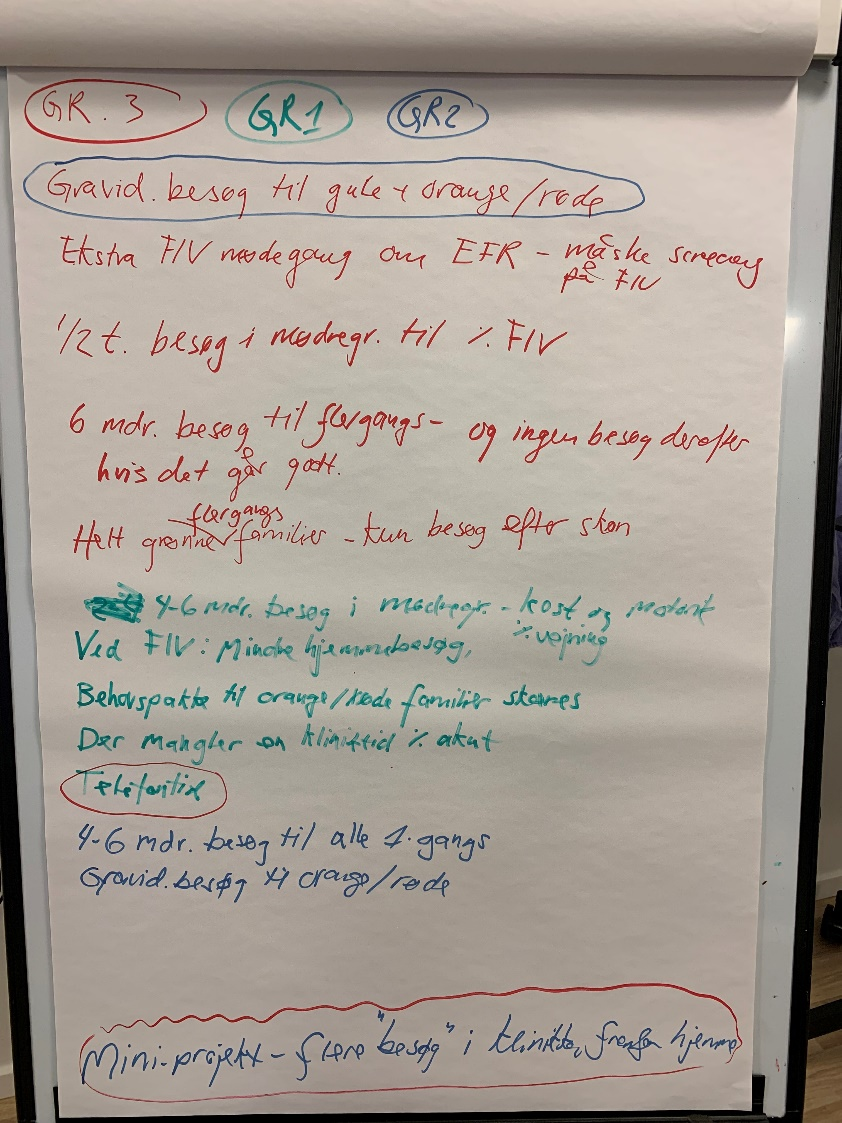 GR. 3 GR1 GR2
Gravid. besøg til gule + orange/røde
Ekstra FIV mødegang om EFR - måske screeng
på FIV
1/2 t. besøg i mødregr. til ٪ FIV
6 mdr. besøg til flergangs- og ingen besøg derefter
hvis det går godt.
flergangs
Helt grønne familier - kun besøg efter skøn
4-6 mdr. besøg i mødregr. - kost og motorik
٪ vejning
Ved FIV: Mindre hjemmebesøg,
Behovspakke til orange/røde familier
Der mangler en kliniktid ٪ akut
4-6 mdr. besøg til alle 1. gangs
Gravid. besøg til orange/røde
Mini-projekt - flere "besøg" i klinikken, fremfor hjemme